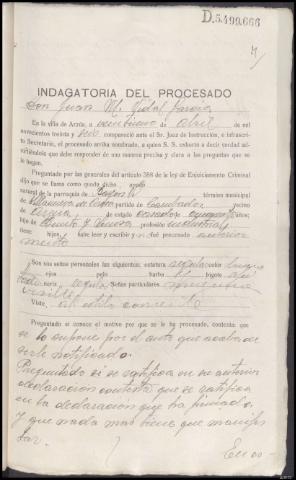 D.5.499.666
4
INDAGATORIA DEL PROCESADO
Don Juan Ml. Vidal García
En la villa de Arzúa, a veintiuno de abril de mil
novecientos treinta y seis compareció ante el Sr. Juez de Instrucción, e infrascrito
Secretario, el procesado arriba nombrado, a quien S. S. exhorta a decir verdad advirtiéndole
que debe responder de una manera precisa y clara a las preguntas que se
le hagan.
Preguntado por las generales del artículo 388 de la ley de Enjuiciamiento Criminal
dijo que se llama como queda dicho
natural de la parroquia de término municipal
de partido de vecino
de de estado casado de años;
hijo de y profesión industrial
tiene hijos, sabe leer y escribir y procesado anterior
mente
Son sus señas personales las siguientes: estatura regular
ojos pelo barba bigote
nariz regular Señas particulares ninguna
visible
Viste al estilo corriente
Preguntado si conoce el motivo por que se le ha procesado, contesta que
se lo supone por el auto que acaba de
serle notificado.
Preguntado si se ratifica en su anterior
declaración contesta que se ratifica
en la declaración que ha firmado.
Y que nada mas tiene que manifes
tar.